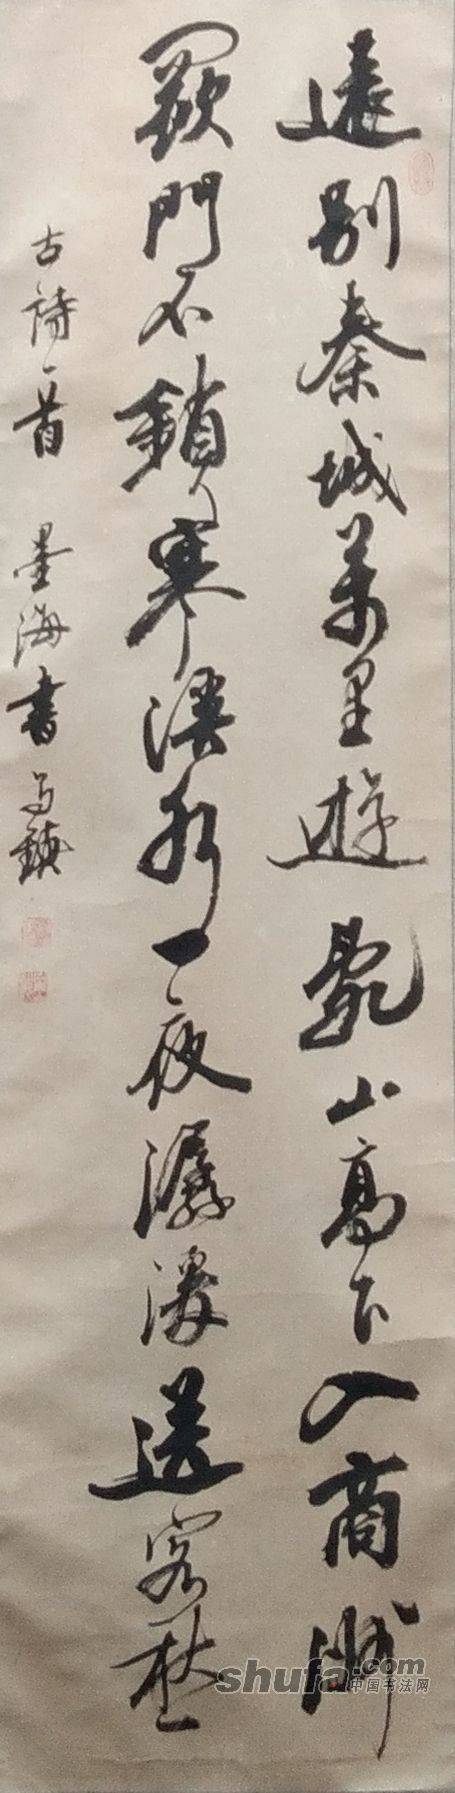 遠別秦城萬里遊亂山高下入商州
關門不鎖寒溪水一夜潺湲送客愁
古詩一首 墨海書 鎮
shufa.com
中国书法网